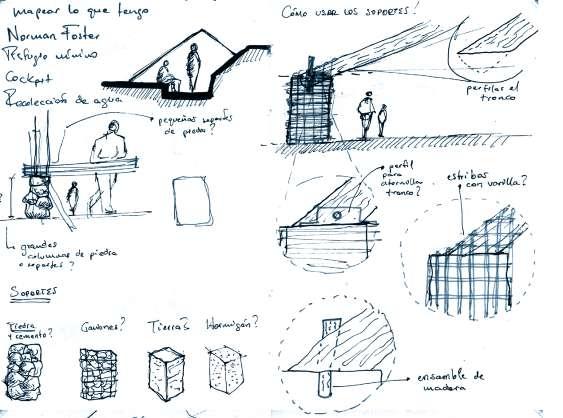 mapear lo que tengo
Norman Foster
Refugio mínimo
Cockpit
Recolección de agua
pequeños soportes
de piedra?
?
grandes
columnas de piedra
o soportes?
SOPORTES
Piedra
y cemento?
Gaviones?
Tierra?
Hormigón?
CÓMO USAR LOS SOPORTES!
perfilar el
tronco
perfil
para
atornillar
tronco?
estribos
con varilla?
ensamble de
madera